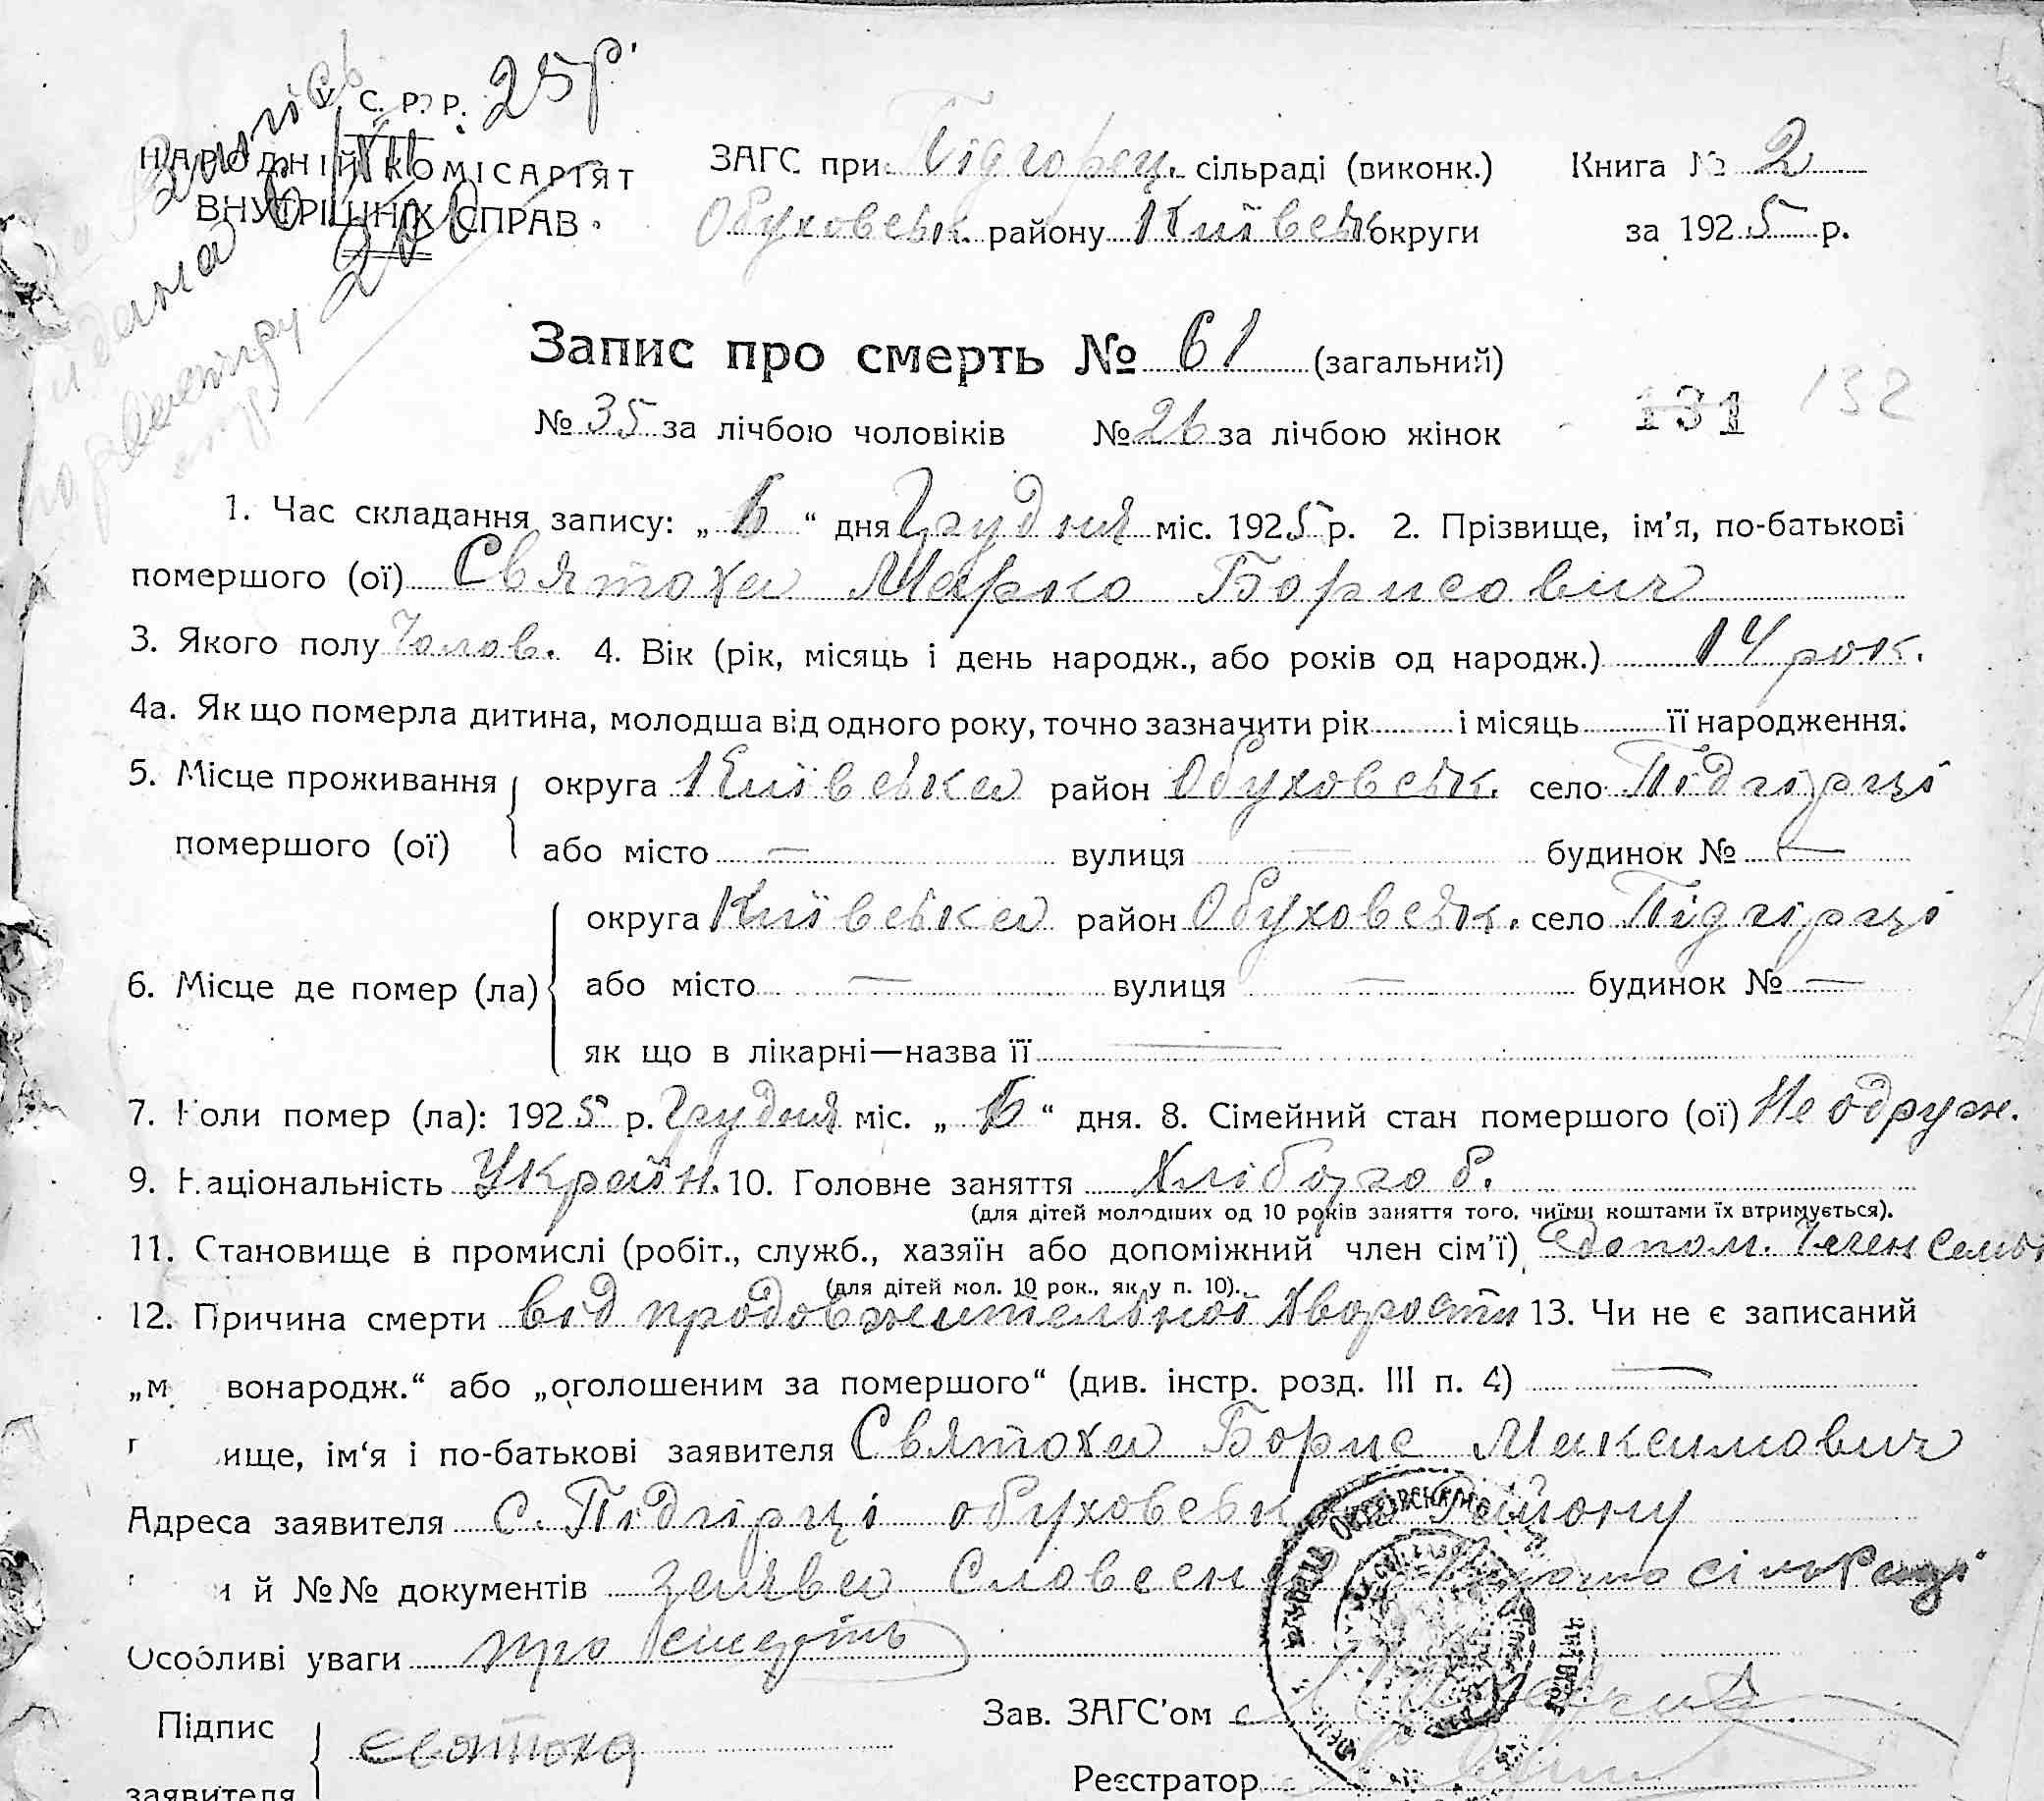 С. Р. Р. 25 р.
НАРОДНІЙ КОМІСАРІЯТ
ВНУТРІШНІХ СПРАВ
ЗАГС при Підгорец. сільраді (виконк.) Книга № 2
Обуховськ. району Київськ округи за 1925 р.
Запис про смерть № 61 (загальний)
№ 35 за лічбою чоловіків № 26 за лічбою жінок 131 132
1. Час складання запису: „ 6 “ дня Грудня міс. 1925 р. 2. Прізвище, ім'я, по-батькові
помершого (ої) Святоха Марко Борисович
3. Якого полу Чолов. 4. Вік (рік, місяць і день народж., або років од народж.) 14 рок.
4а. Як що померла дитина, молодша від одного року, точно зазначити рік і місяць її народження.
5. Місце проживання округа Київська район Обуховськ. село Підгірці
помершого (ої) або місто — вулиця — будинок № —
округа Київська район Обуховськ. село Підгірці
6. Місце де помер (ла) або місто — вулиця — будинок № —
як що в лікарні—назва її —
7. Коли помер (ла): 1925 р. Грудня міс. „ 6 “ дня. 8. Сімейний стан помершого (ої) Не одруж.
9. Національність Україн. 10. Головне заняття Хлібороб.
(для дітей молодших од 10 років заняття того, чиїми коштами їх втримується).
11. Становище в промислі (робіт., служб., хазяїн або допоміжний член сім'ї) допом. член семьї
(для дітей мол. 10 рок., як у п. 10).
12. Причина смерти від продовжительної хворости 13. Чи не є записаний
„м вонародж.“ або „оголошеним за помершого“ (див. інстр. розд. III п. 4) —
ище, ім'я і по-батькові заявителя Святоха Борис Максимович
Адреса заявителя С. Підгірці Обуховськ Району
й №№ документів заява сільради
Особливі уваги про смерть
Підпис Святоха Зав. ЗАГС'ом
заявителя Реєстратор